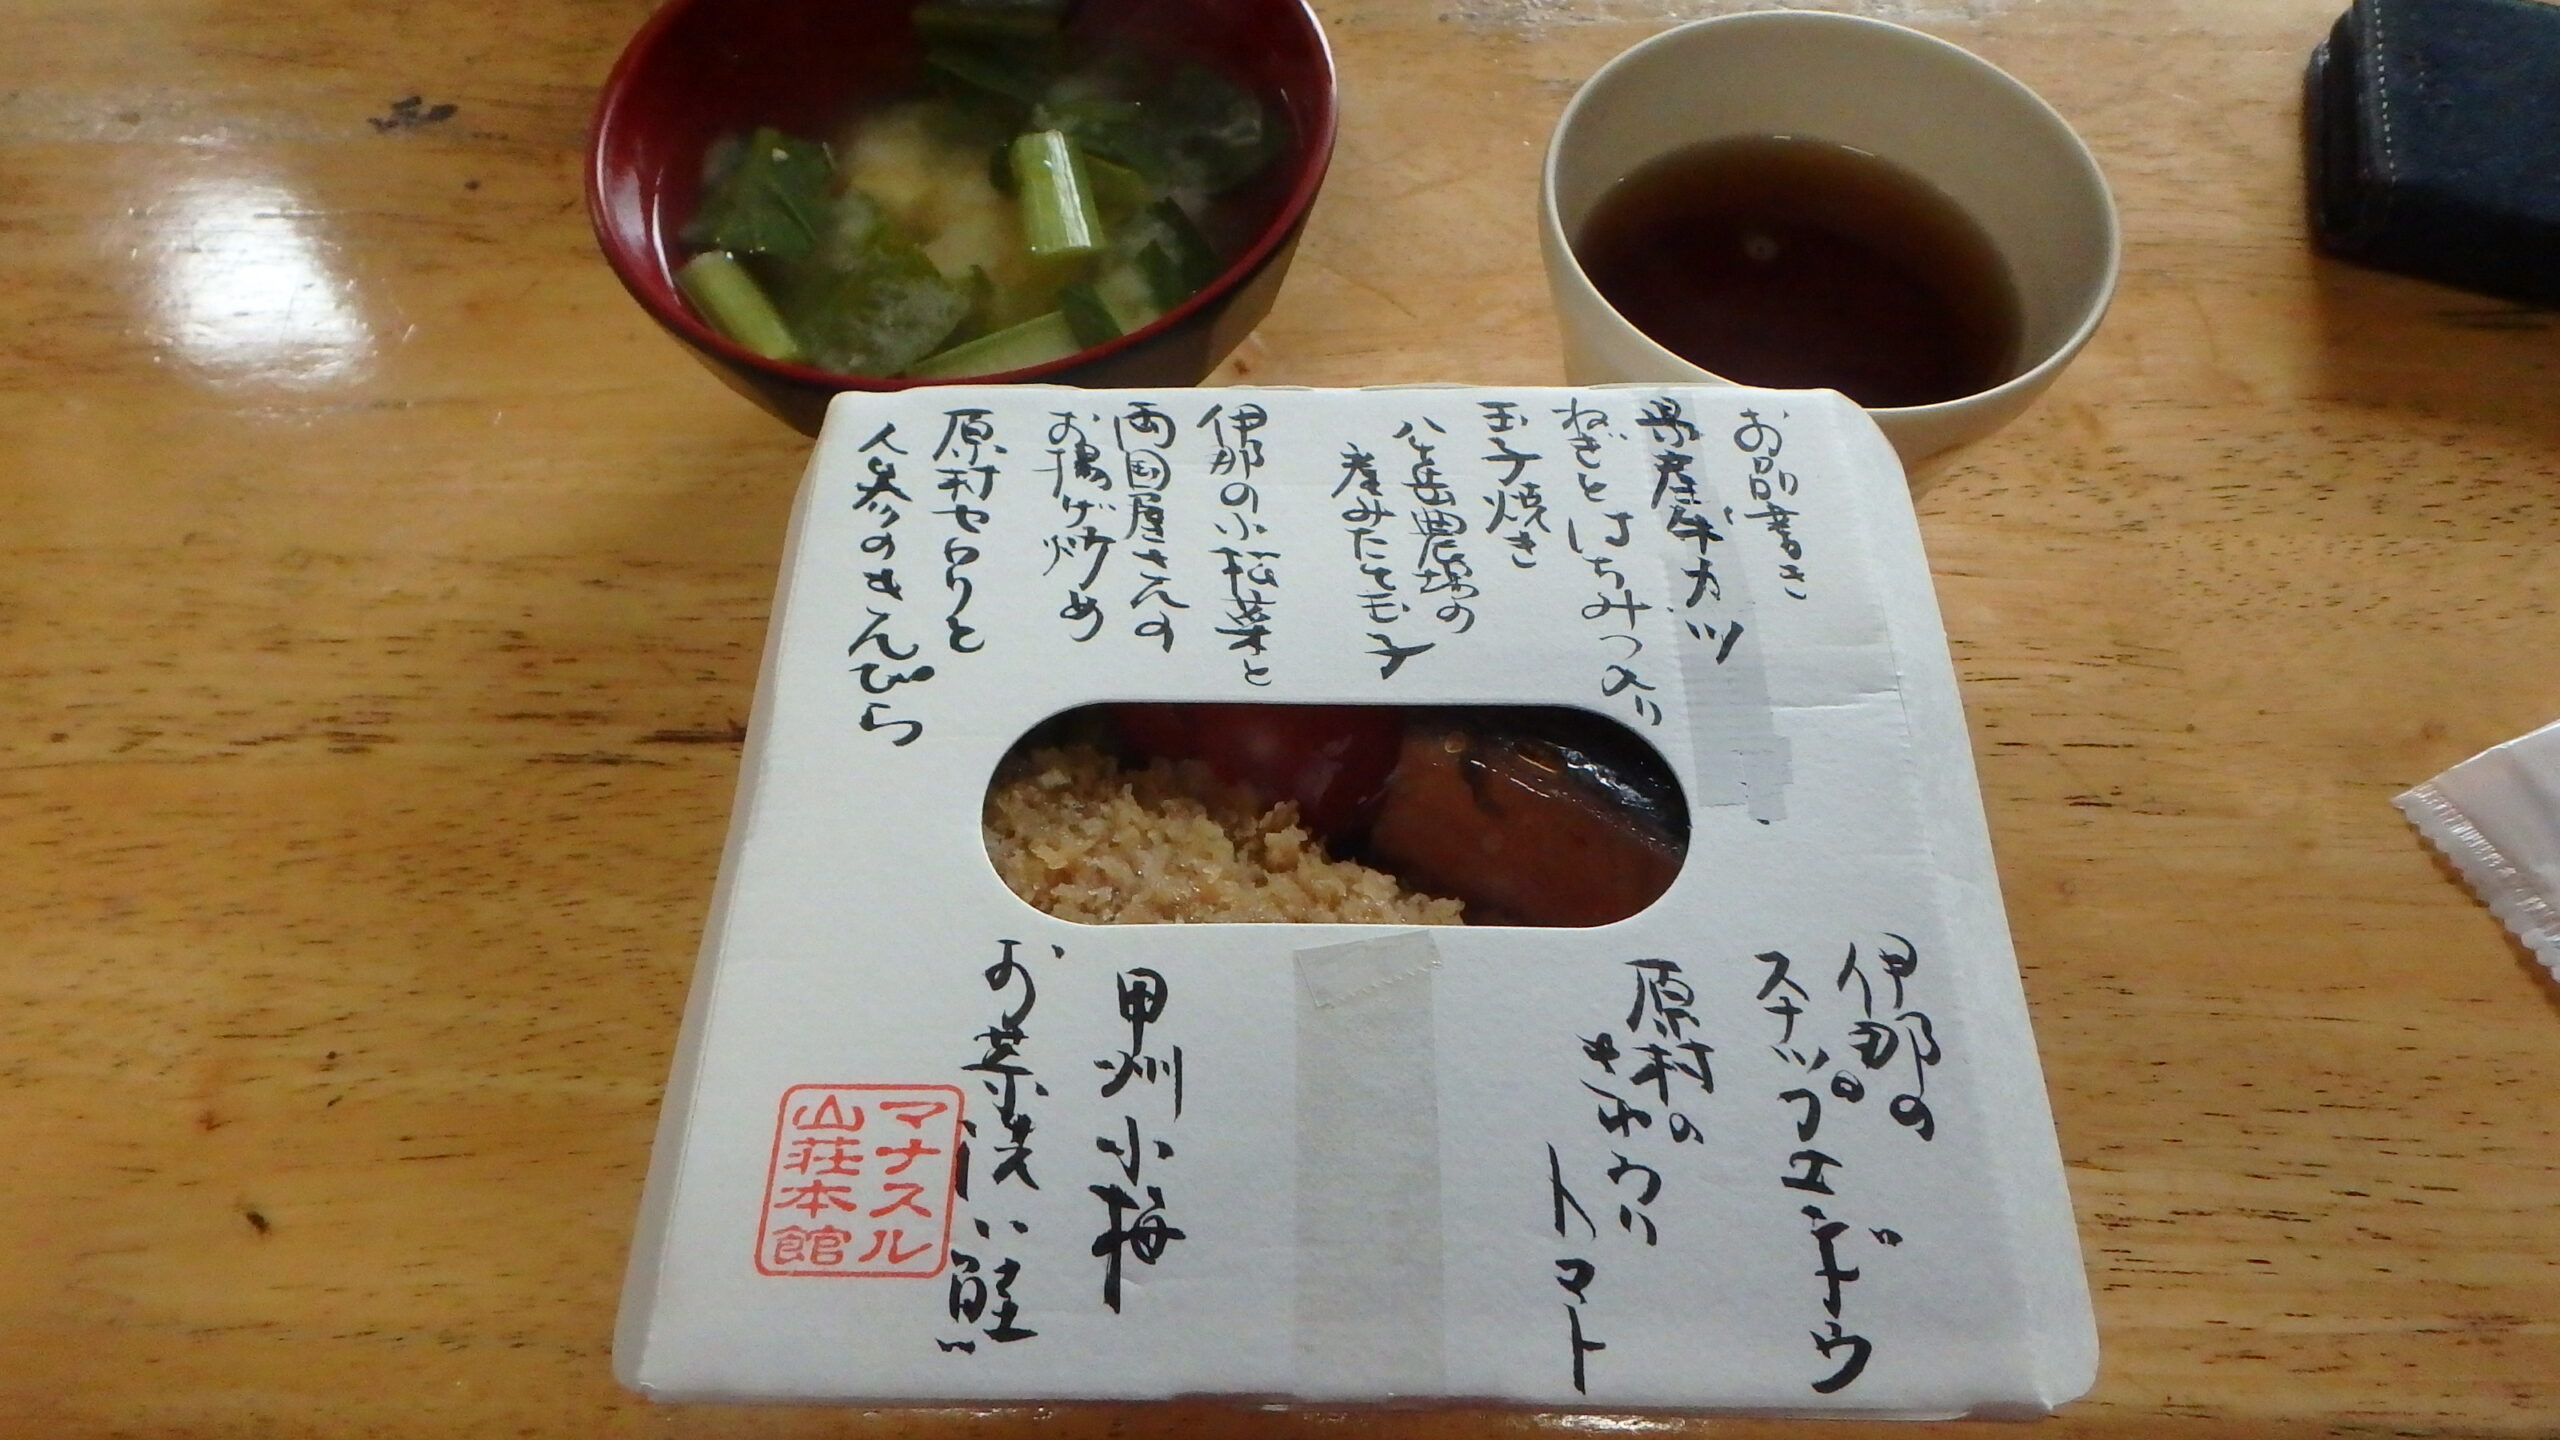 お品書き
県産牛カツ
ねぎとはちみつ入り
玉子焼き
八ヶ岳農場の
産みたて玉子
伊那の小松菜と
両国屋さんの
お揚げ炒め
原村セロリと
人参のきんぴら
伊那の
スナップエンドウ
原村の
さわわり
トマト
甲州小梅
お葉漬け
鮭
マナスル
山荘本館